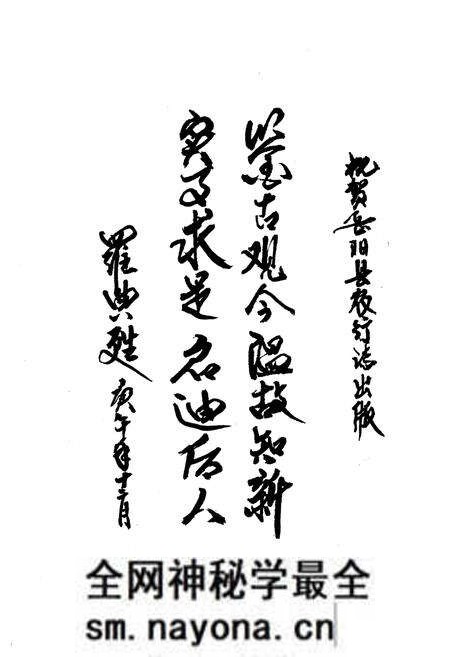 祝贺岳阳县农行志出版
鉴古观今温故知新
实事求是启迪后人
羅典甦 庚午年十二月
全网神秘学最全
sm.nayona.cn